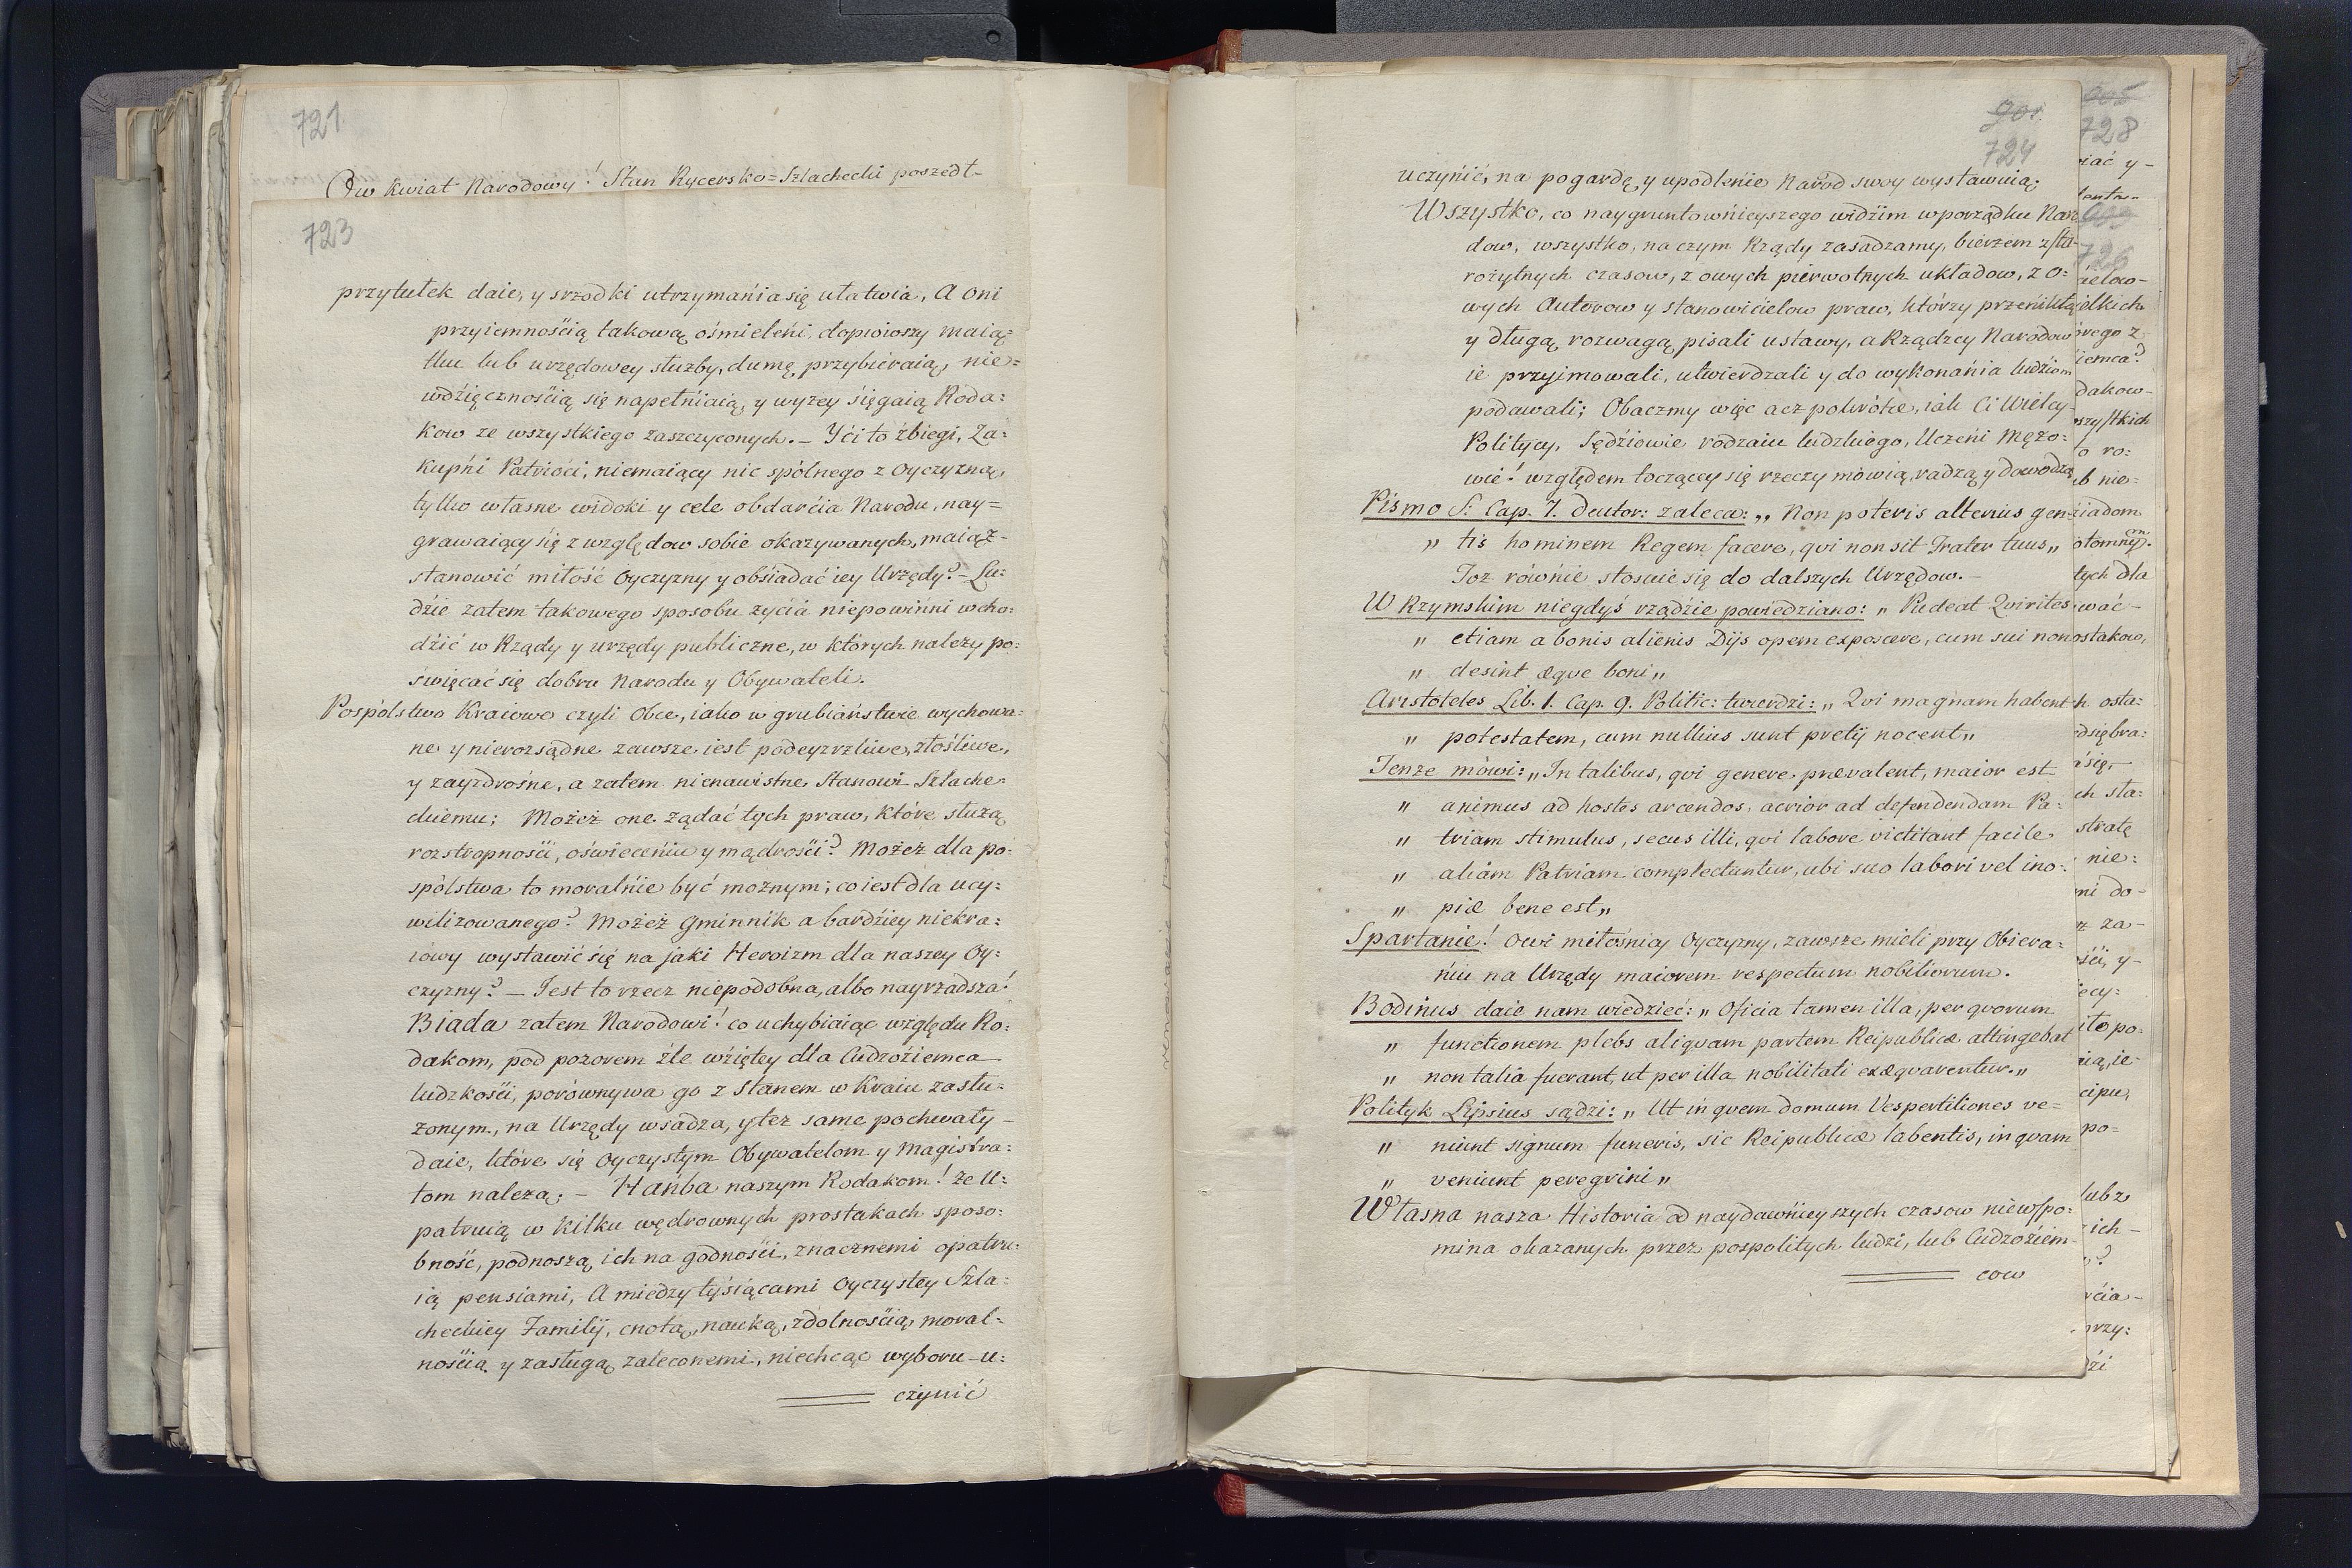 721
Ow kwiat Narodowy! Stan Rycersko=Szlachecki poszedł-
723
przytułek daie, y srzodki utrzymańia się ułatwia, A oni
przyiemnośćią takową ośmieleńi, dopioioszy maią=
tku lub urzędowey służby, dumę przybieraią, nie=
wdźięcznośćią się napełńiaią, y wyżey śięgaią Roda=
kow ze wszystkiego zaszczyconych. – Yći to źbiegi, Za=
kupńi Patrioći, niemaiący nic spólnego z Oyczyzną,
tylko własne widoki y cele obdarćia Narodu, nay=
grawaiący się z względow sobie okazywanych, maiąż-
stanowić miłość Oyczyzny y obśiadać iey Urzędy? – Lu=
dźie zatem takowego sposobu życia niepowinni wcho=
dźić w Rządy y urzędy publiczne, w których należy po=
święcać się dobru Narodu y Obywateli.
Pospólstwo Kraiowe czyli Obce, iako w grubiaństwie wychowa=
ne y nierozsądne zawsze iest podeyzrzliwe, złośliwe,
y zayzdrośne, a zatem nienawistne Stanowi Szlache=
ckiemu; Możeż one żądać tych praw, które służą
rozstropnośći, oświeceńiu y mądrośći? Możeż dla po=
spólstwa to moralńie być możnym; co iest dla ucy=
wilizowanego? Możeż Gminnik a bardźiey niekra=
iówy wystawić się na jaki Heroizm dla naszey Oy=
czyzny? – Jest to rzecz niepodobna, albo nayrzadsza!
Biada zatem Narodowi! co uchybiaiąc względu Ro=
dakom, pod pozorem źle wźiętey dla Cudzoźiemca
ludzkośći, porównywa go z Stanem w Kraiu zasłu=
żonym, na Urzędy wsadza, y też same pochwały –
daie, które się Oyczystym Obywatelom y Magistra=
tom należą; – Hańba naszym Rodakom! że U=
patruią w kilku wędrownych prostakach sposo=
bność, podnoszą ich na godnośći, znacznemi opatru=
ią pensiami, A miedzy tyśiącami Oyczystey Szla=
checkiey Familij, cnotą, nauką, zdolnośćią, moral=
nośćią y zasługą zaleconemi, niechcąc wyboru – u=
czynić
901.
724
uczynić, na pogardę y upodlenie Naród swoy wystawuią;
Wszystko, co naygruntowńieyszego widźim w porządku Naro
dow, wszystko, na czym Rządy zasadzamy, bierzem z sta-
rożytnych czasow, z owych pierwotnych układow, z o=
wych Autorow y stanowićielow praw, którzy przeńikłą
y długą rozwagą pisali ustawy, a Rządzcy Narodow
ie przyimowali, utwierdzali y do wykonańia ludźiom
podawali; Obaczmy więc acz pokrótce, iak Ci Wielcy
Politycy, Sędźiowie rodzaiu ludzkiego, Uczeńi Mężo=
wie! względem toczącey się rzeczy mówią, radzą y dowodzą
Pismo S: Cap. 7. Deutor: zaleca: „ Non poteris alterius gen=
„ tis hominem Regem facere, qvi non sit Frater tuus „
Toż równie stosuie się do dalszych Urzędow. –
W Rzymskim niegdyś rządźie powiedziano: „ Pudeat Qvirites
„ etiam a bonis alienis Dijs opem exposcere, cum sui non
„ desint æqve boni „
Aristoteles Lib. 1. Cap. 9. Politic: twierdzi: „ Qvi magnam habent
„ potestatem, cum nullius sunt pretij nocent „
Tenże mówi: „ In talibus, qvi genere prævalent, maior est
„ animus ad hostes arcendos, acrior ad defendendam Pa=
„ triam stimulus, secus illi, qvi labore victitant facile
„ aliam Patriam complectuntur, ubi suo labori vel ino=
„ piæ bene est „
Spartanie! owi miłośnicy Oyczyzny, zawsze mieli przy Obiera=
ńiu na Urzędy maiorem respectum nobiliorum.
Bodinus daie nam wiedzieć: „ Oficia tamen illa, per qvorum
„ functionem plebs aliqvam partem Reipublicæ attingebat
„ non talia fuerant, ut per illa nobilitati exæqvarentur. „
Polityk Lipsius sądzi: „ Ut in qvem domum Vespertiliones ve=
„ niunt signum funeris, sic Reipublicæ labentis, in qvam
„ veniunt peregrini „
Własna nasza Historia od naydawńieyszych czasow niewspo=
mina okazanych przez pospolitych ludzi, lub Cudzoźiem=
cow
905
728
726